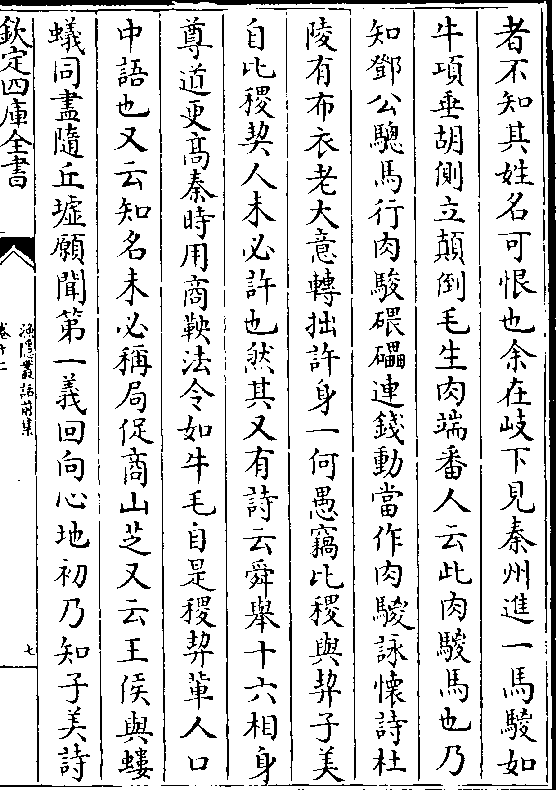 者不知其姓名可恨也余在岐下見秦州進一馬騣如
牛項垂胡側立顛倒毛生肉端番人云此肉騣馬也乃
知鄧公驄馬行肉駿碨礧連錢動當作肉騣詠懷詩杜
陵有布衣老大意轉拙許身一何愚竊比稷與契子美
自比稷契人未必許也然其又有詩云舜舉十六相身
尊道更髙秦時用商鞅法令如牛毛自是稷契軰人口
中語也又云知名未必稱局促商山芝又云王侯與螻
蟻同盡隨丘墟願聞第一義回向心地初乃知子美詩
欽定四庫全書
漁隱叢話前集
卷十二
七